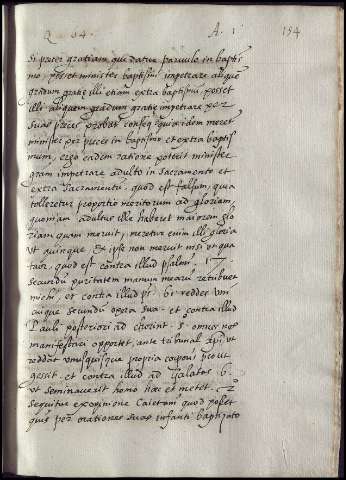 Q 64. A. 1 154
si preter gratiam, que datur parvulo in baptis
mo, posset minister baptismi impetrare aliquē
gradum gratie illi etiam extra baptismū posset
illi aliquem gradum gratie impetrare per
suas preces probat conseq quia idem meret
minister per preces in baptismo et extra baptis
mum, ergo eadem ratione poterit minister
gram impetrare adulto in sacramento et
extra sacramentū. quod est falsum, quia
tolleretur proportio meritorum ad gloriam
quoniam adultus ille haberet maiorem glo
riam quam meruit, meretur enim illi gloria
ut quinque & ipse non meruit nisi ut qua
tuor, quod est contra illud psalmi. 17.
secundū puritatem manuum mearū retribuet
michi, et contra illud ps. 61. reddes uni
cuique secundū opera sua. et contra illud
Pauli posteriori ad chorint. 5. omnes nos
manifestari oportet, ante tribunal xpi, ut
reddat unusquisque propria corporis prout
gessit. et contra illud ad Galatas 6.
ut seminaverit homo hec et metet. 2º
sequitur ex opinione Caietani quod posset
quis per orationes suas infanti baptizato